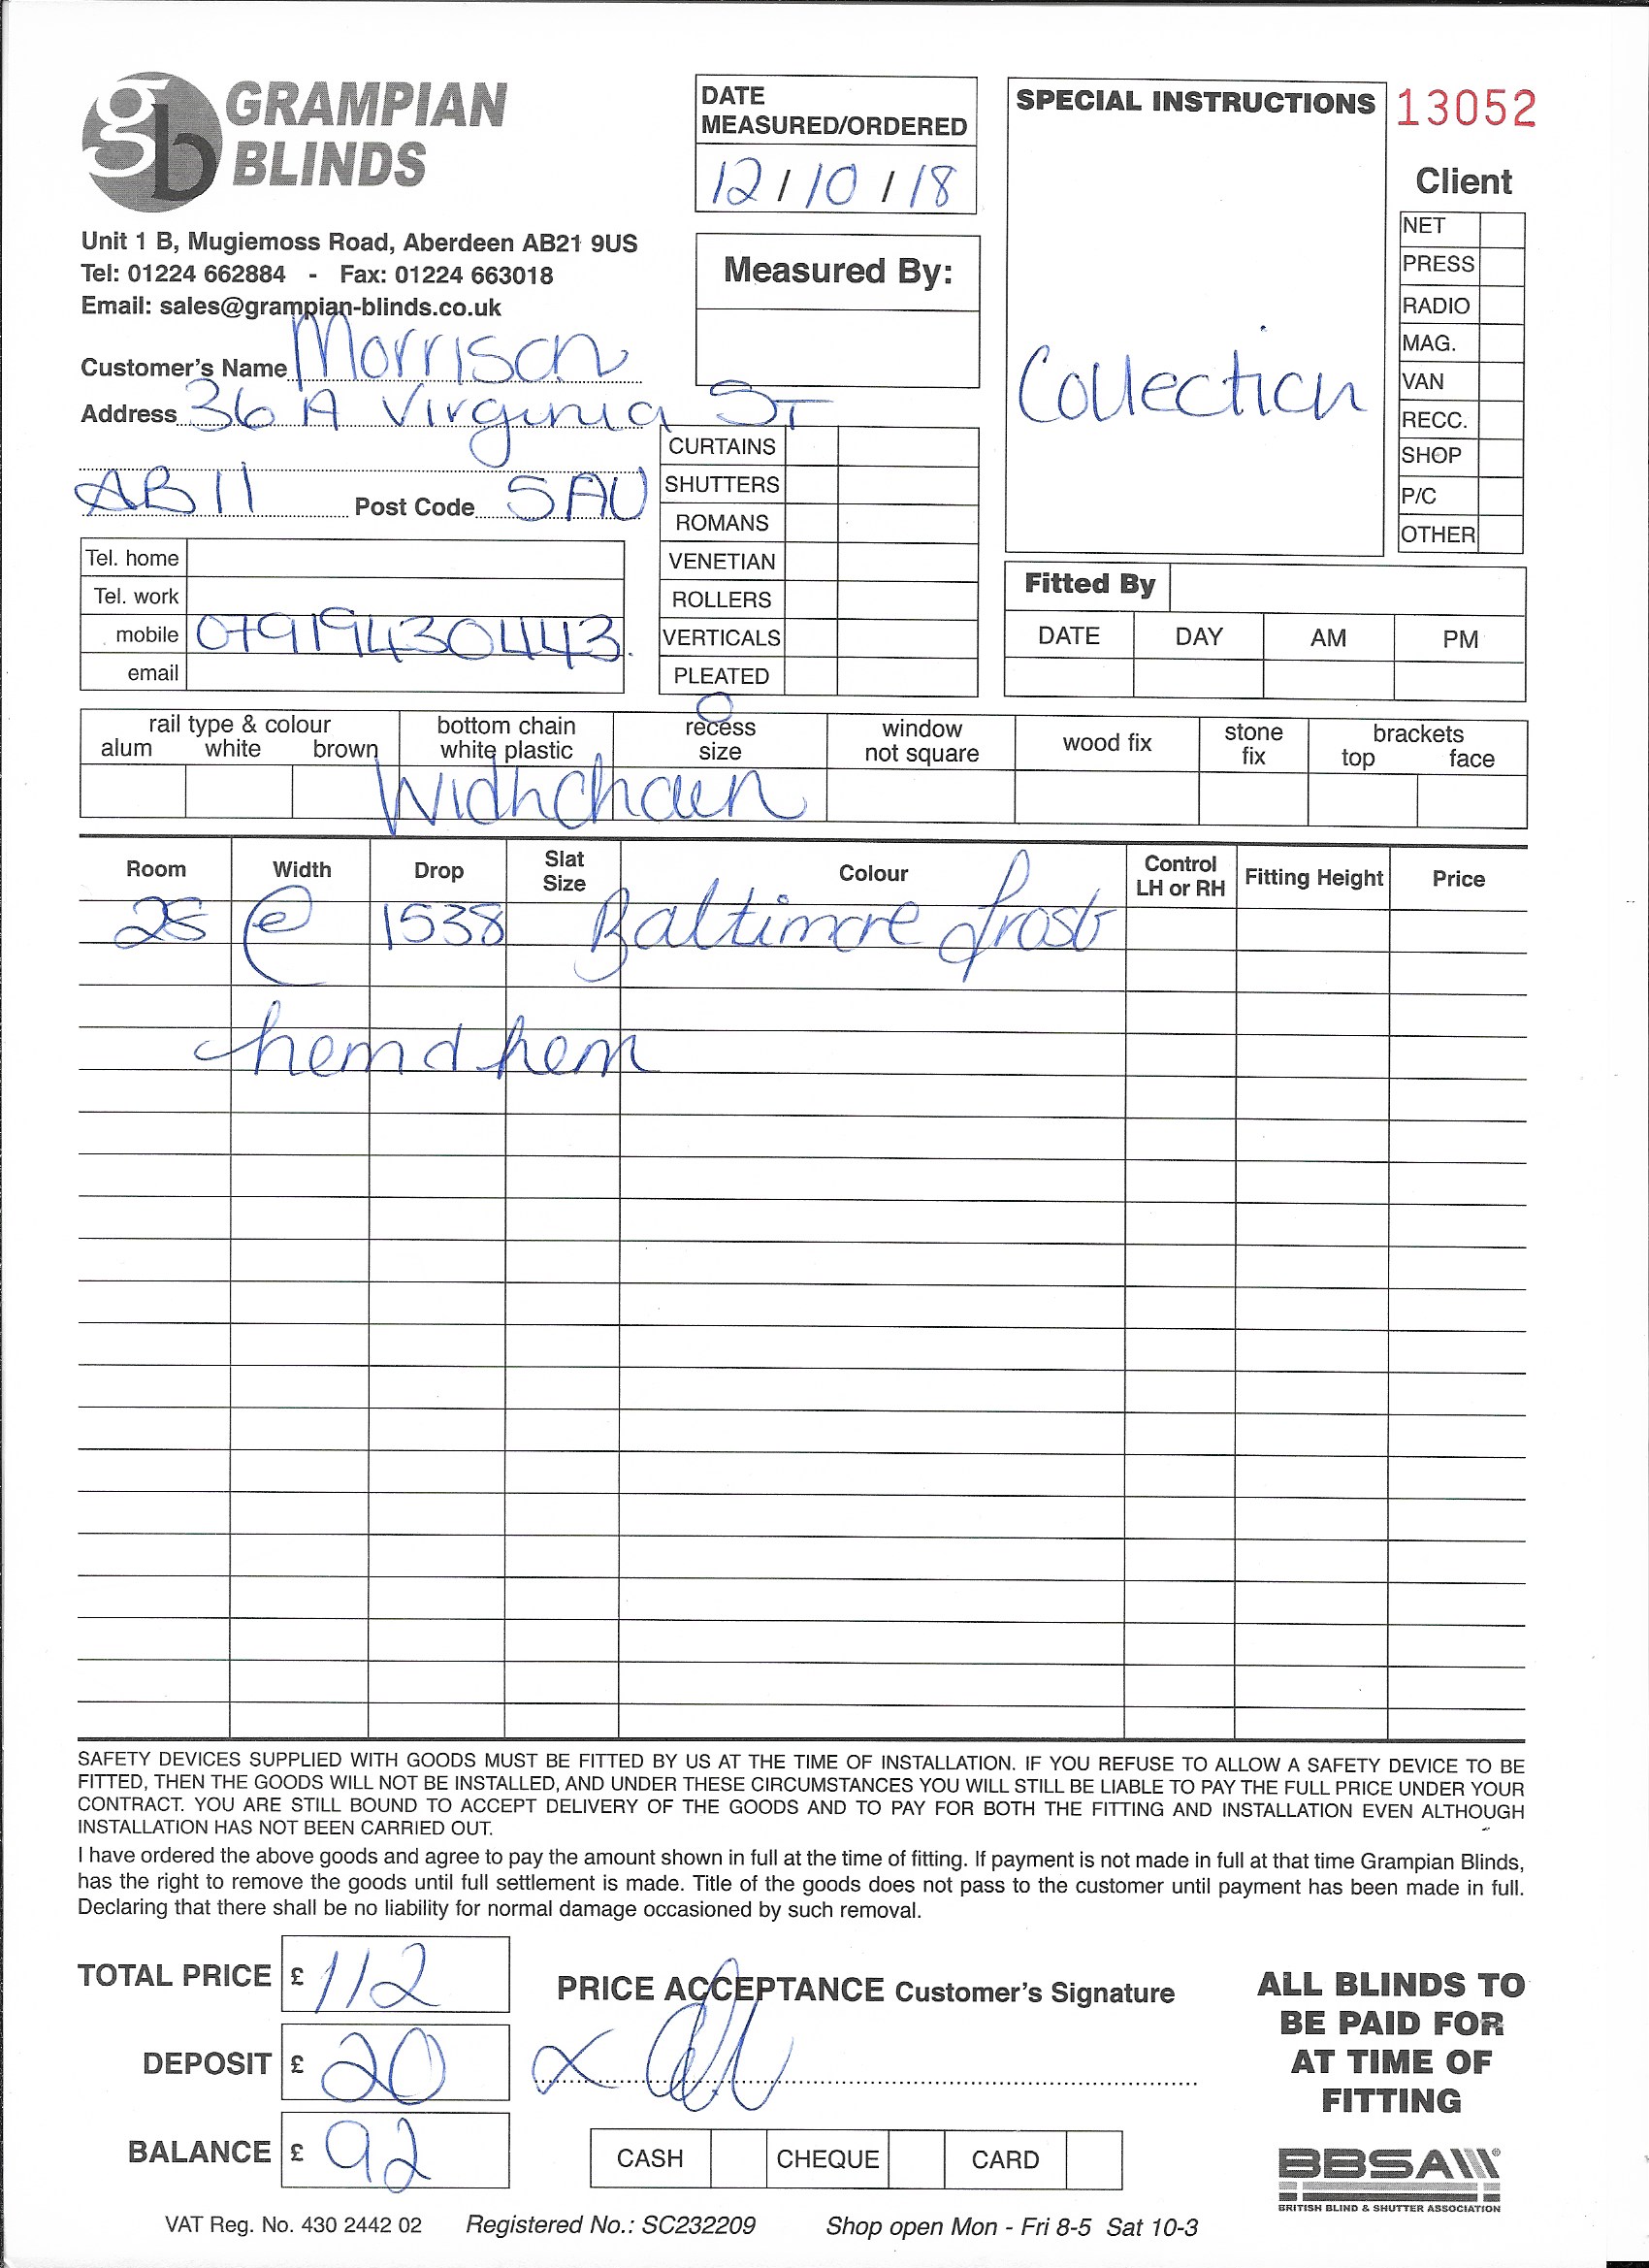 gb GRAMPIAN BLINDS
Unit 1 B, Mugiemoss Road, Aberdeen AB21 9US
Tel: 01224 662884 - Fax: 01224 663018
Email: sales@grampian-blinds.co.uk
DATE MEASURED/ORDERED
12 / 10 / 18
Measured By:
SPECIAL INSTRUCTIONS
Collection
13052
Client
NET
PRESS
RADIO
MAG.
VAN
RECC.
SHOP
P/C
OTHER
Customer's Name Morrison
Address 36 A Virginia ST
AB11 Post Code 5AU
Tel. home
Tel. work
mobile 07919430443.
email
CURTAINS
SHUTTERS
ROMANS
VENETIAN
ROLLERS
VERTICALS
PLEATED
Fitted By
DATE DAY AM PM
rail type & colour
alum white brown
bottom chain
white plastic
recess
size
window
not square
wood fix
stone
fix
brackets
top face
Room Width Drop Slat Size Colour Control LH or RH Fitting Height Price
@ 1538 Baltimore frost
SAFETY DEVICES SUPPLIED WITH GOODS MUST BE FITTED BY US AT THE TIME OF INSTALLATION. IF YOU REFUSE TO ALLOW A SAFETY DEVICE TO BE
FITTED, THEN THE GOODS WILL NOT BE INSTALLED, AND UNDER THESE CIRCUMSTANCES YOU WILL STILL BE LIABLE TO PAY THE FULL PRICE UNDER YOUR
CONTRACT. YOU ARE STILL BOUND TO ACCEPT DELIVERY OF THE GOODS AND TO PAY FOR BOTH THE FITTING AND INSTALLATION EVEN ALTHOUGH
INSTALLATION HAS NOT BEEN CARRIED OUT.
I have ordered the above goods and agree to pay the amount shown in full at the time of fitting. If payment is not made in full at that time Grampian Blinds,
has the right to remove the goods until full settlement is made. Title of the goods does not pass to the customer until payment has been made in full.
Declaring that there shall be no liability for normal damage occasioned by such removal.
TOTAL PRICE £ 112
DEPOSIT £ 20
BALANCE £ 92
PRICE ACCEPTANCE Customer's Signature
CASH CHEQUE CARD
ALL BLINDS TO
BE PAID FOR
AT TIME OF
FITTING
BBSA
BRITISH BLIND & SHUTTER ASSOCIATION
VAT Reg. No. 430 2442 02 Registered No.: SC232209 Shop open Mon - Fri 8-5 Sat 10-3